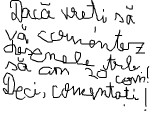 Dacă vreti să
vă comentez
desenele trebe
să am 20 com!
Deci, comentati!